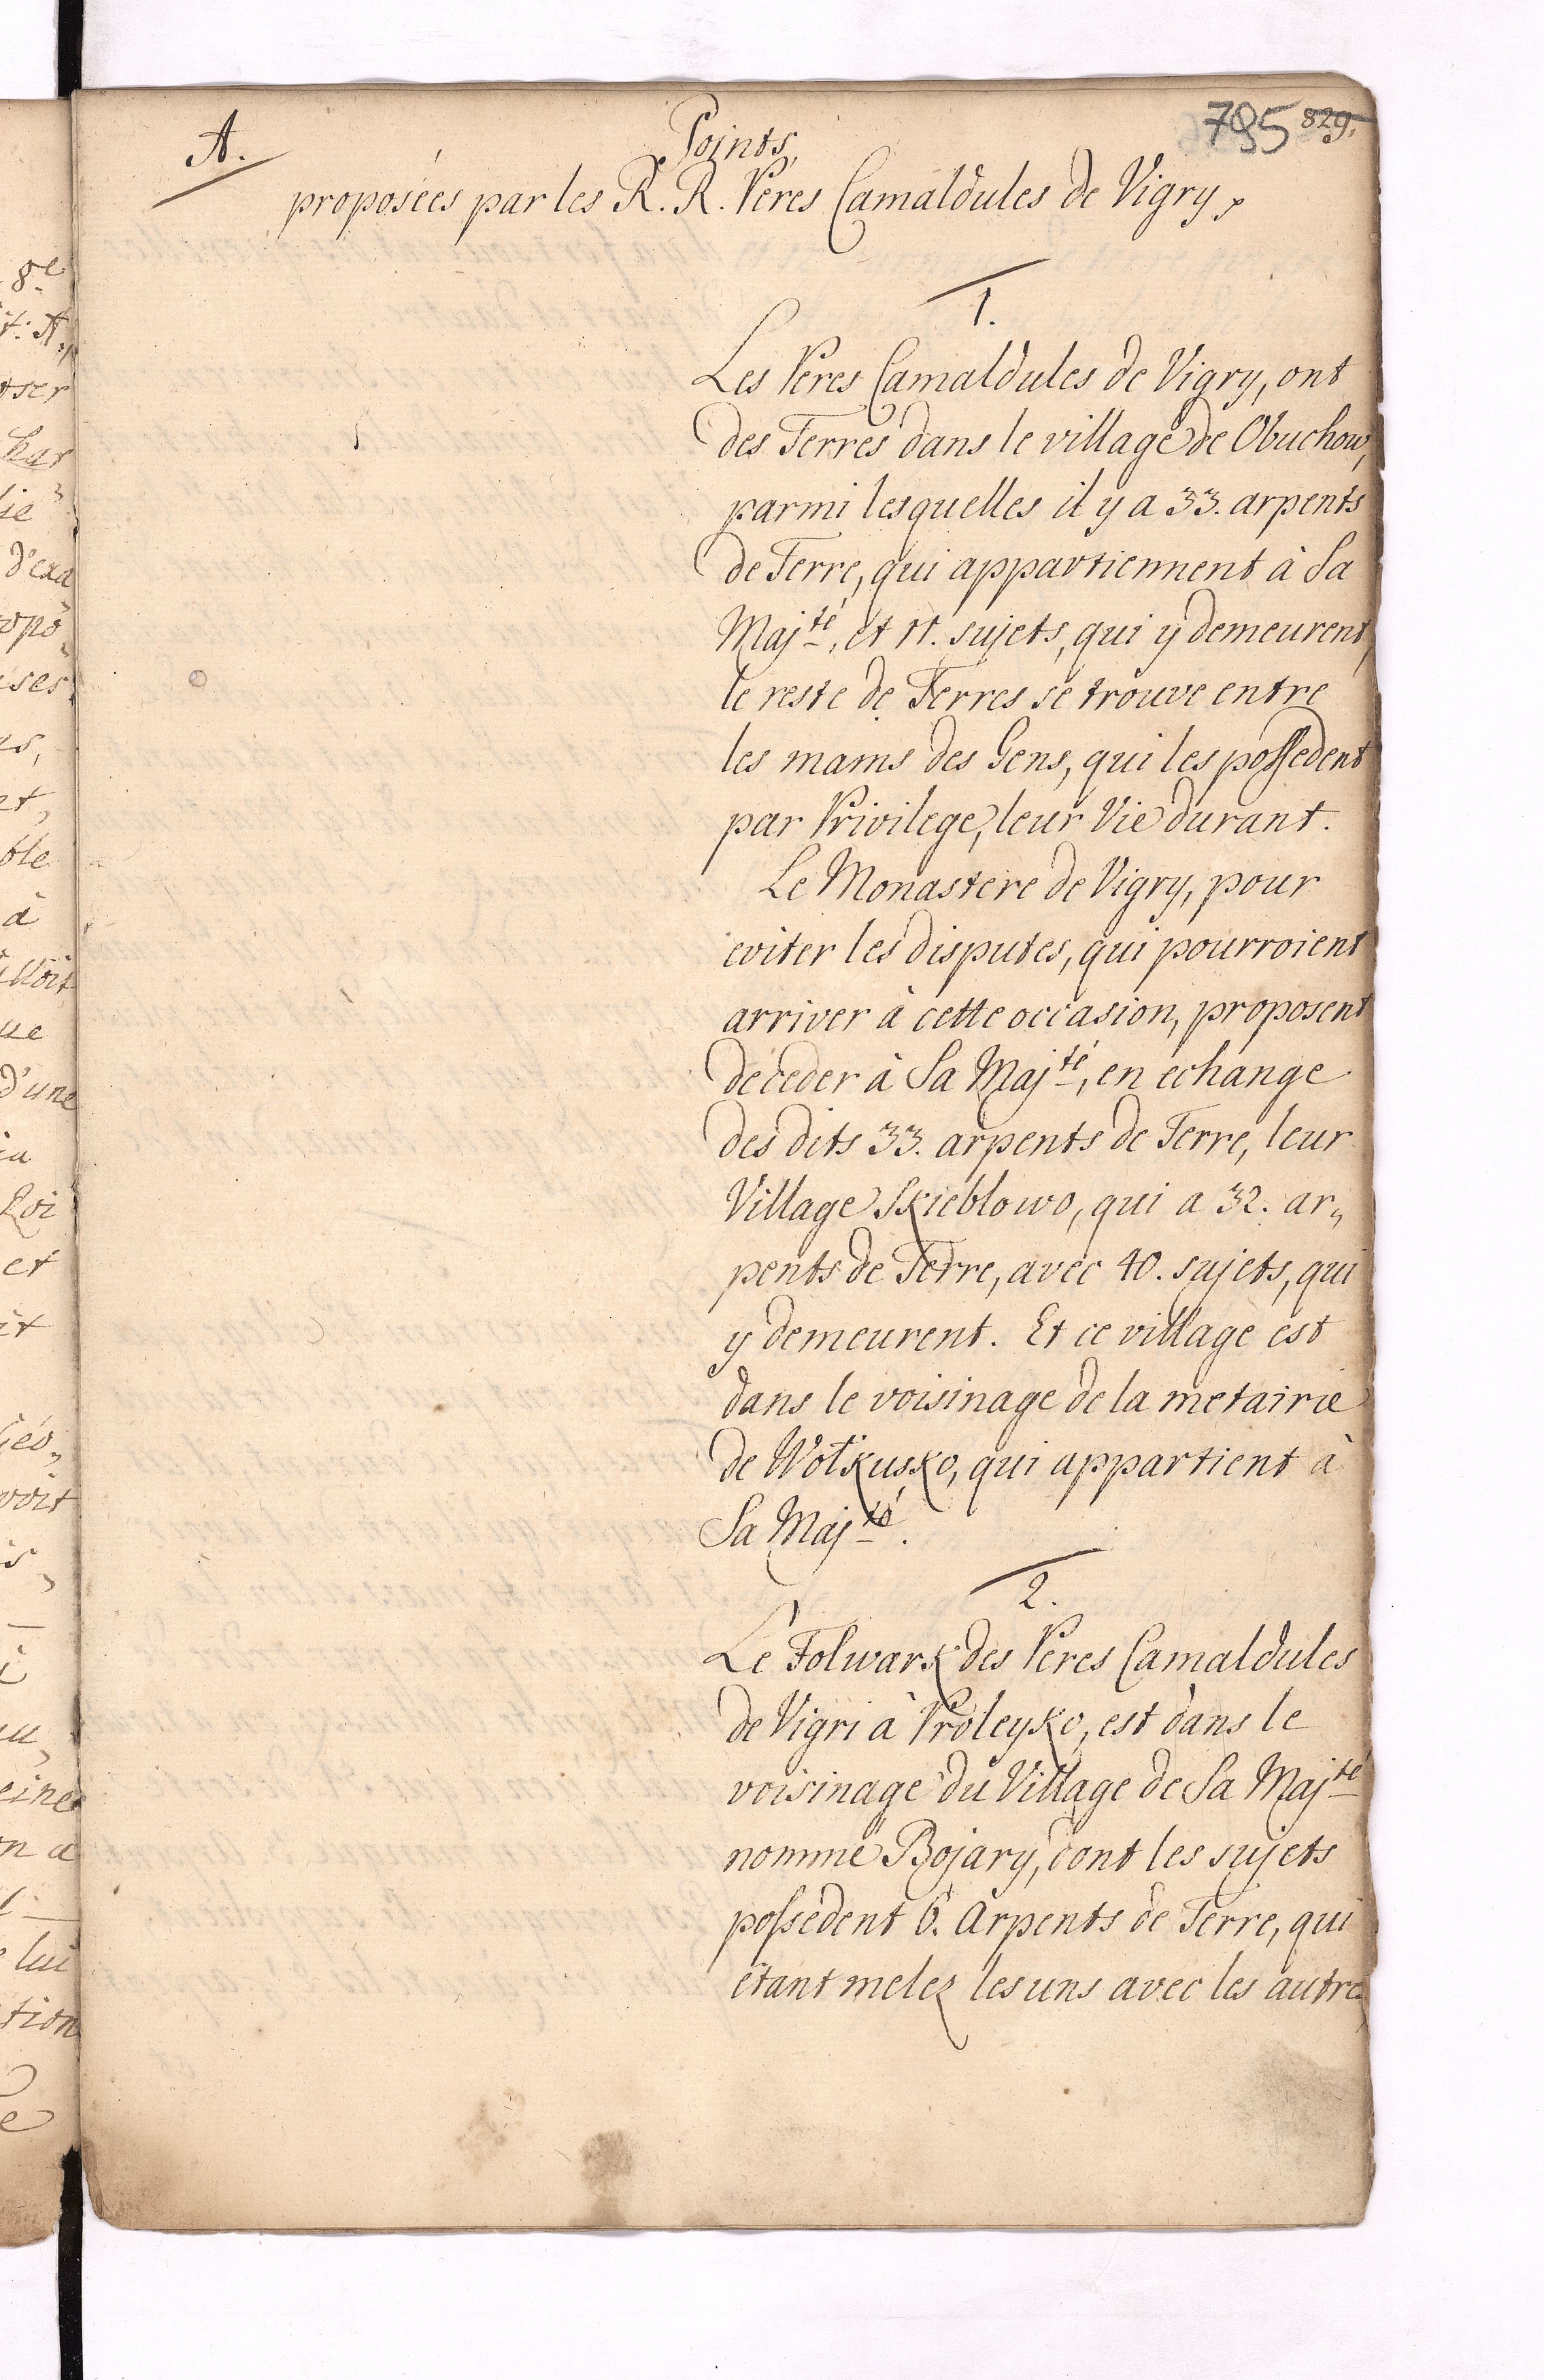 A.
Points,
795 829.
proposées par les R. R. Peres Camaldules de Vigry,
1.
Les Peres Camaldules de Vigry, ont
des Terres dans le village de Obuchow,
parmi lesquelles il y a 33. arpents
de Terre, qui appartiennent à Sa
Majté, et 11. sujets, qui y demeurent,
le reste de Terres se trouve entre
les mains des Gens, qui les possedent
par Privilege, leur Vie durant.
Le Monastere de Vigry, pour
eviter les disputes, qui pourroient
arriver à cette occasion, proposent
de ceder à Sa Majté, en echange
des dits 33. arpents de Terre, leur
Village Skieblowo, qui a 32. ar„
pents de Terre, avec 40. sujets, qui
y demeurent. Et ce village est
dans le voisinage de la metairie
de Wołkusko, qui appartient à
Sa Majté.
2.
Le Folwark des Peres Camaldules
de Vigri à Proleyko, est dans le
voisinage du Village de Sa Majté
nommé Bojary, dont les sujets
possedent 6. Arpents de Terre, qui
étant melez les uns avec les autres,